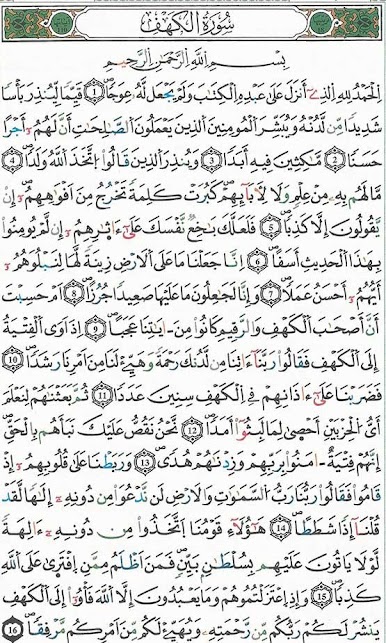 سُورَةُ الْكَهْفِ
بِسْمِ اللَّهِ الرَّحْمَٰنِ الرَّحِيمِ
الْحَمْدُ لِلهِ الذِے أَنزَلَ عَلَىٰ عَبْدِهِ الْكِتَٰبَ وَلَمْ يَجْعَل لَّهُۥ عِوَجاً ۝1 قَيِّماً لِّيُنذِرَ بَأْساً
شَدِيداً مِّن لَّدُنْهُ وَيُبَشِّرَ الْمُومِنِينَ الذِينَ يَعْمَلُونَ الصَّٰلِحَٰتِ أَنَّ لَهُمُۥٓ أَجْراً
حَسَناً ۝2 مَّٰكِثِينَ فِيهِ أَبَداً ۝3 وَيُنذِرَ الذِينَ قَالُوا۟ اُ۪تَّخَذَ اَ۬للَّهُ وَلَداً ۝4
مَّا لَهُم بِهِۦ مِنْ عِلْمٍ وَلَا لِأٓبَآئِهِمْ كَبُرَتْ كَلِمَةً تَخْرُجُ مِنَ اَفْوَٰهِهِمُۥٓ إِنْ
يَّقُولُونَ إِلَّا كَذِباً ۝5 فَلَعَلَّكَ بَٰخِعٌ نَّفْسَكَ عَلَىٰٓ ءَاثٰ۪رِهِمُۥٓ إِن لَّمْ يُومِنُوا۟
بِهَٰذَا اَ۬لْحَدِيثِ أَسَفاً ۝6 اِنَّا جَعَلْنَا مَا عَلَى اَ۬لَارْضِ زِينَةً لَّهَا لِنَبْلُوَهُمُۥٓ
أَيُّهُمُۥٓ أَحْسَنُ عَمَلاً ۝7 وَإِنَّا لَجَٰعِلُونَ مَا عَلَيْهَا صَعِيداً جُرُزاً ۝8 اَمْ حَسِبْتَ
أَنَّ أَصْحَٰبَ اَ۬لْكَهْفِ وَالرَّقِيمِ كَانُوا۟ مِنَ اٰيَٰتِنَا عَجَباً ۝9 اِذَ اَوَى اَ۬لْفِتْيَةُ
إِلَى اَ۬لْكَهْفِ فَقَالُوا۟ رَبَّنَآ ءَاتِنَا مِن لَّدُنكَ رَحْمَةً وَهَيِّئْ لَنَا مِنَ اَمْرِنَا رَشَداً ۝10
فَضَرَبْنَا عَلَىٰٓ ءَاذَانِهِمْ فِے اِ۬لْكَهْفِ سِنِينَ عَدَداً ۝11 ثُمَّ بَعَثْنَٰهُمْ لِنَعْلَمَ
أَيُّ اُ۬لْحِزْبَيْنِ أَحْصَىٰ لِمَا لَبِثُوٓا۟ أَمَداً ۝12 نَّحْنُ نَقُصُّ عَلَيْكَ نَبَأَهُم بِالْحَقِّ
إِنَّهُمْ فِتْيَةٌ اٰمَنُوا۟ بِرَبِّهِمْ وَزِدْنَٰهُمْ هُدىً ۝13 وَرَبَطْنَا عَلَىٰ قُلُوبِهِمُۥٓ إِذْ
قَامُوا۟ فَقَالُوا۟ رَبُّنَا رَبُّ اُ۬لسَّمَٰوَٰتِ وَالَارْضِ لَن نَّدْعُوَا۟ مِن دُونِهِۦٓ إِلَٰهاً لَّقَد
قُلْنَآ إِذاً شَطَطاً ۝14 هَٰٓؤُلَآءِ قَوْمُنَا اَ۪تَّخَذُوا۟ مِن دُونِهِۦٓ ءَالِهَةً
لَّوْلَا يَاتُونَ عَلَيْهِم بِسُلْطَٰنِۢ بَيِّنٍ فَمَنَ اَظْلَمُ مِمَّنِ اِ۪فْتَر۪ىٰ عَلَى اَ۬للَّهِ
كَذِباً ۝15 وَإِذِ اِ۪عْتَزَلْتُمُوهُمْ وَمَا يَعْبُدُونَ إِلَّا اَ۬للَّهَ فَأْوُۥٓا۟ إِلَى اَ۬لْكَهْفِ
يَنشُرْ لَكُمْ رَبُّكُم مِّن رَّحْمَتِهِۦ وَيُهَيِّئْ لَكُم مِّنَ اَمْرِكُم مَّرْفِقاً ۝16